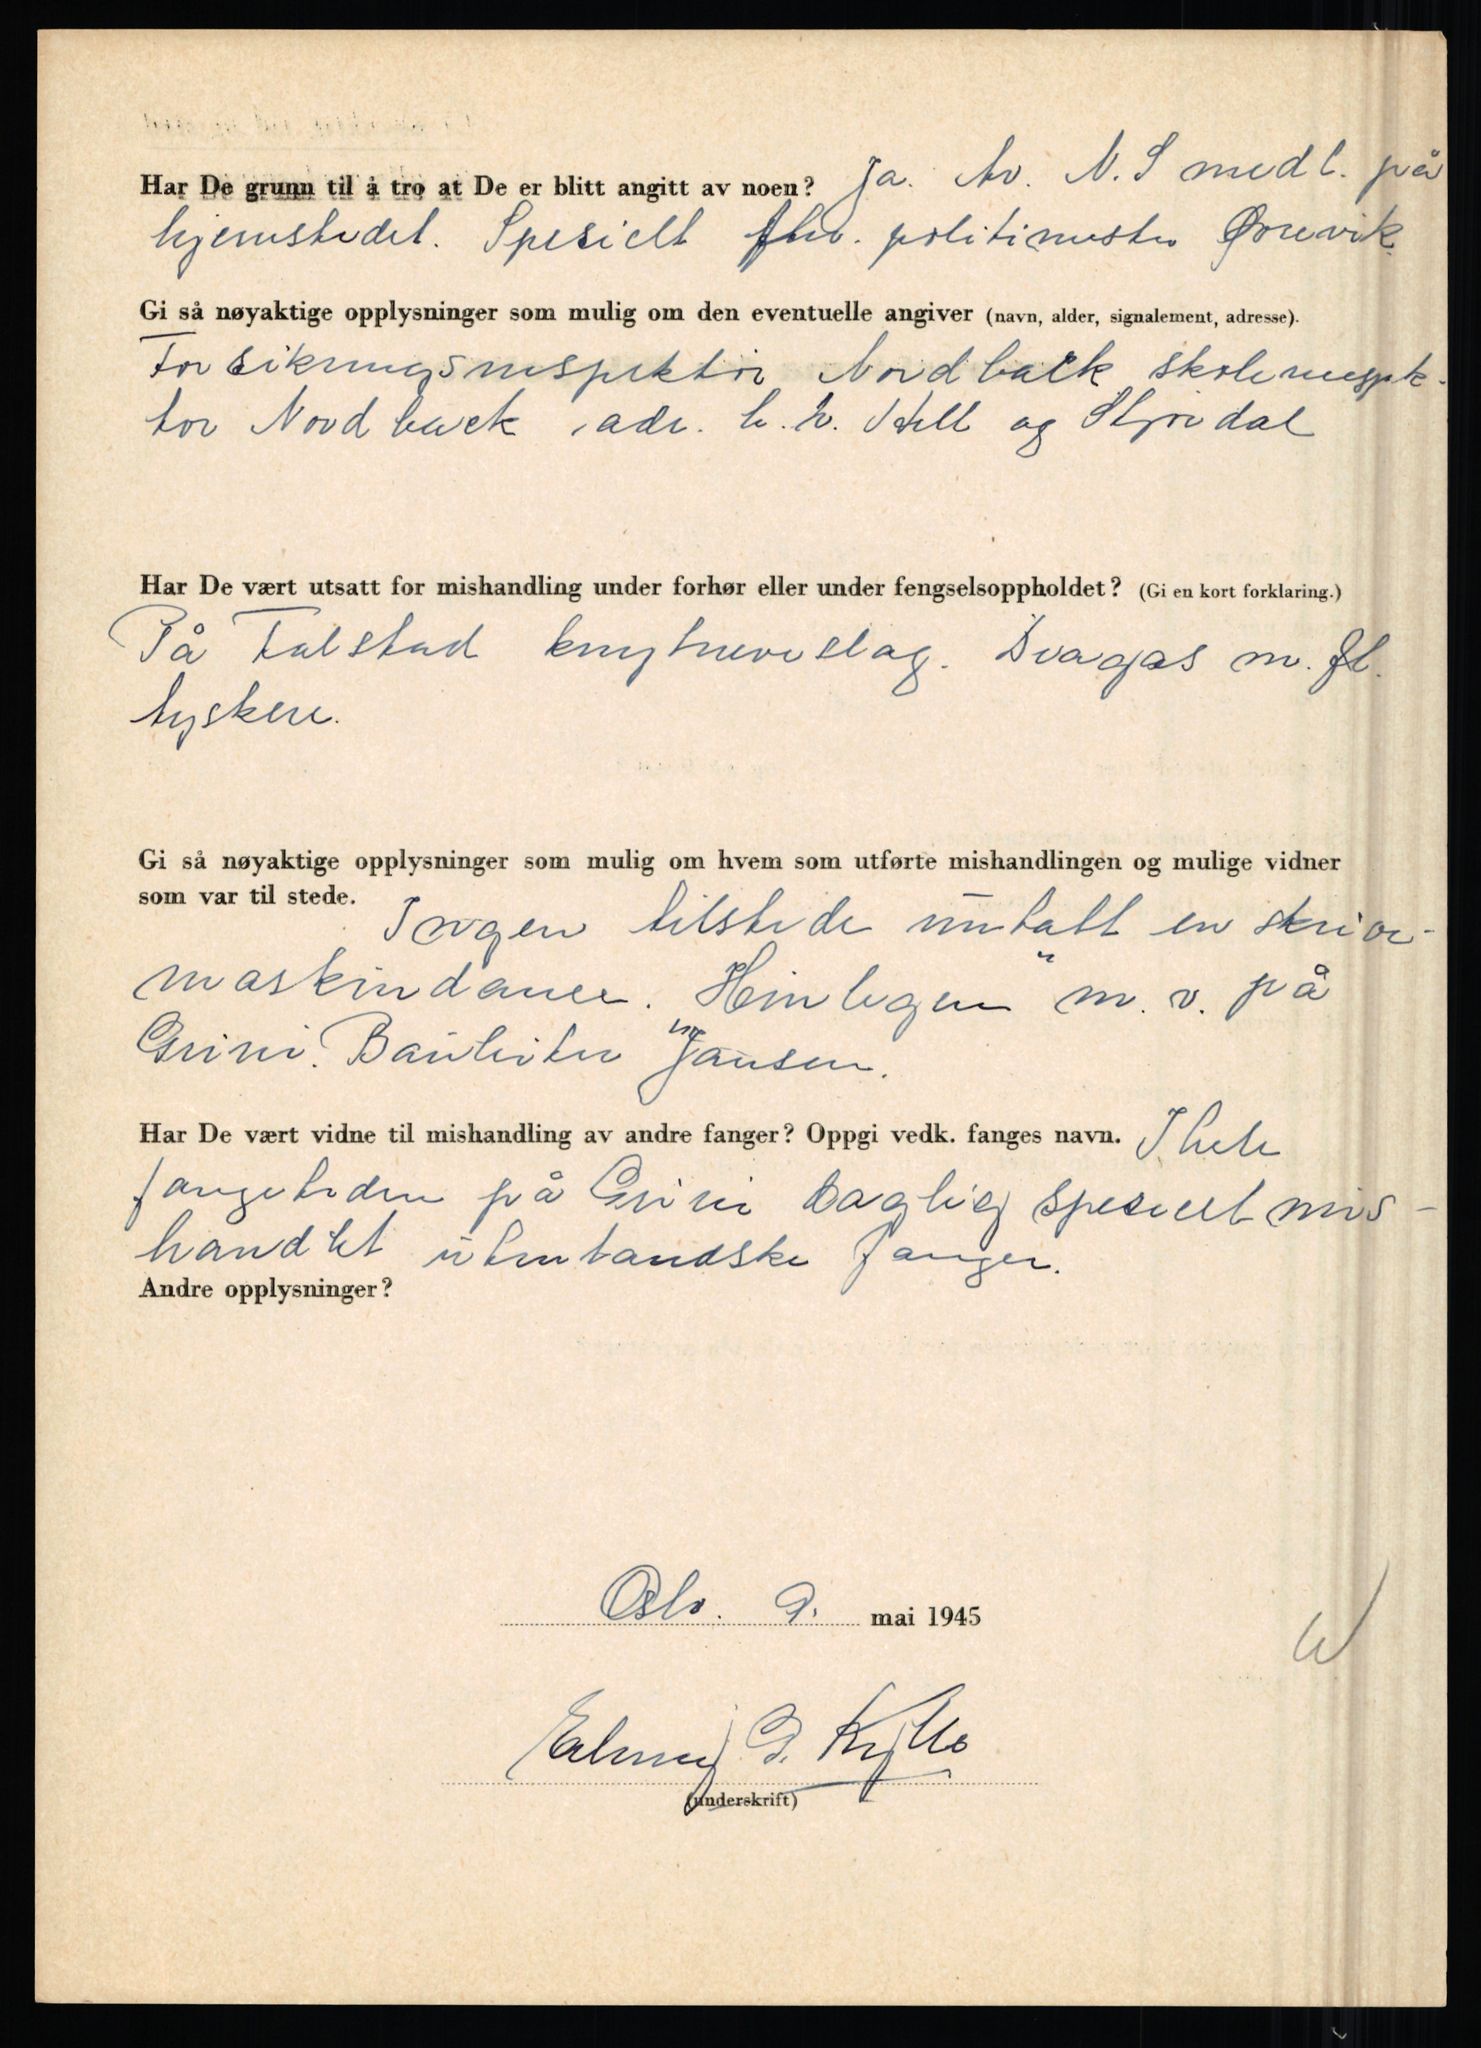 Har De grunn til å tro at De er blitt angitt av noen? Ja. Av. N.S medl. på
hjemstedet. Spesielt fhv. politimester Ørevik
Gi så nøyaktige opplysninger som mulig om den eventuelle angiver (navn, alder, signalement, adresse).
Forsikringsinspektør Nordback skoleinspek-
tør Nordback, adr. h.h. Hell og Stjørdal
Har De vært utsatt for mishandling under forhør eller under fengselsoppholdet? (Gi en kort forklaring.)
På Falstad knytneveslag. Dragas m. fl.
tyskere.
Gi så nøyaktige opplysninger som mulig om hvem som utførte mishandlingen og mulige vidner
som var til stede. Ingen tilstede untatt en skriv-
maskindame. "Hinlegen" m.v. på
Grini. Bauleiter Jansen.
Har De vært vidne til mishandling av andre fanger? Oppgi vedk. fanges navn. I hele
fangetiden på Grini daglig spesielt mis-
handlet utenlandske fanger.
Andre opplysninger?
Oslo. 9. mai 1945
Kyllo
(underskrift)